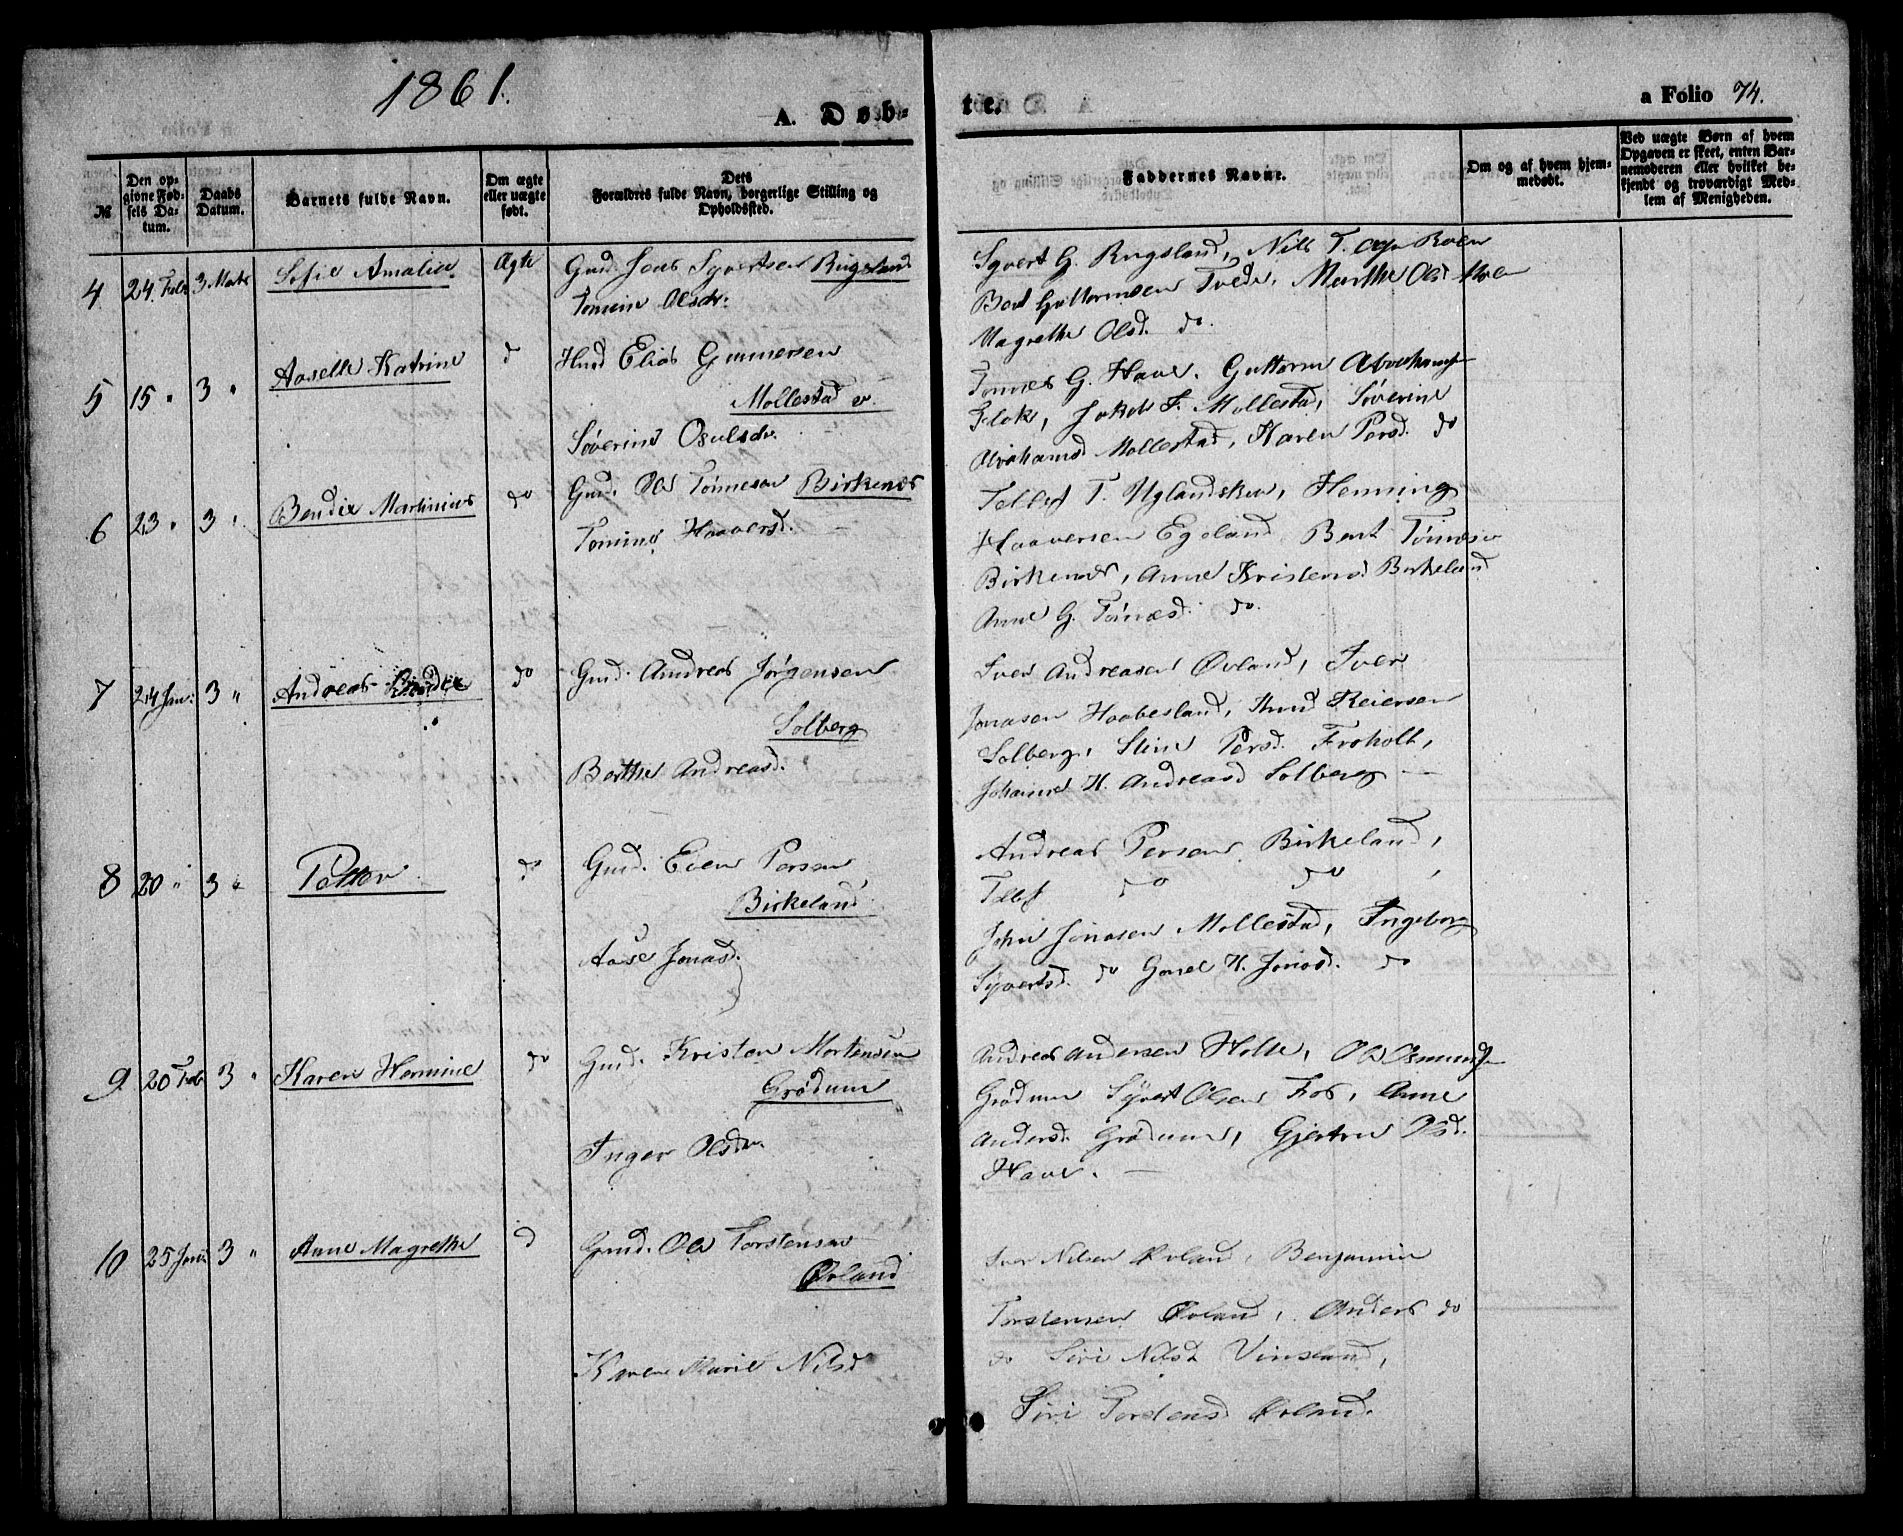 1861.
A. Døb-
te.
a Folio 74.
№
Den op-
givne Fød-
sels Da-
tum.
Daabs
Datum.
Barnets fulde Navn.
Om ægte
eller uægte
født.
Dets
Forældres fulde Navn, borgerlige Stilling og
Opholdssted.
Faddernes Navne.
Om og af hvem hjem-
medøbt.
Ved uægte Børn af hvem
Opgaven er skeet, enten Bar-
nemoderen eller hvilket be-
kjendt og troværdigt Med-
lem af Menigheden.
4 24 Febr 3 Marts Sofie Amalie Ægte Gmd Jens Syvertsen Rugsland
Tomine Olsdr.
Syvert G. Rugsland, Nils T.
Bent Guttormsen Tvede, Marthe Olsd Moe
Magrethe Olsd. do.
5 15 " 3 " Aaselle Katrine d Hmd Elias Gunnersen
Mollestad
Søverine Osulsdr.
Tønnes G. Have, Guttorm Abrahams
Flak, Jakob F. Mollestad, Søverine
Abrahamsd Mollestad, Karen Persd. do
6 23 " 3 " Bendix Martinius do Gmd. Ole Tønnesen Birkenes
Tomine Haaversd.
Tellef T. Uglandskar, Henning
Haaversen Egeland Bent Tønnesen
Birkenes, Anne Kristensd Birkeland
Anne G. Tønnesd. do.
7 24 Jan: 3 " Andreas Bendix do Gmd. Andreas Jørgensen
Solberg
Berthe Andreasd.
Iver Andreasen Øvland, Iver
Jonasen Haabesland, Knud Reiersen
Solberg, Stine Persd. Froholt,
Johanne K. Andreasd Solberg
8 20 " 3 " Petter do Gmd. Even Persen
Birkeland
Aase Jonasd.
Andreas Persen Birkeland,
Tellef do do,
John Jonasen Mollestad, Ingeborg
Syvertsd. do Gunel K. Jonasd. do
9 20 Feb 3 " Karen Hermine do Gmd. Kristen Mortensen
Grødum
Inger Olsdr
Andreas Andersen Holte, Ole Osmunds
Grødum Syvert Olsen Fos, Anne
Andersd. Grødum, Gjertru Olsd.
Have.
10 25 Jan: 3 " Anne Magrethe d Gmd. Ole Torstensen
Øvland
Karen Marie Nilsd
Iver Nilsen Øvland, Benjamin
Torstensen Øvland, Anders do
do Siri Nilsd Vinsland,
Siri Torstensd Øvland.